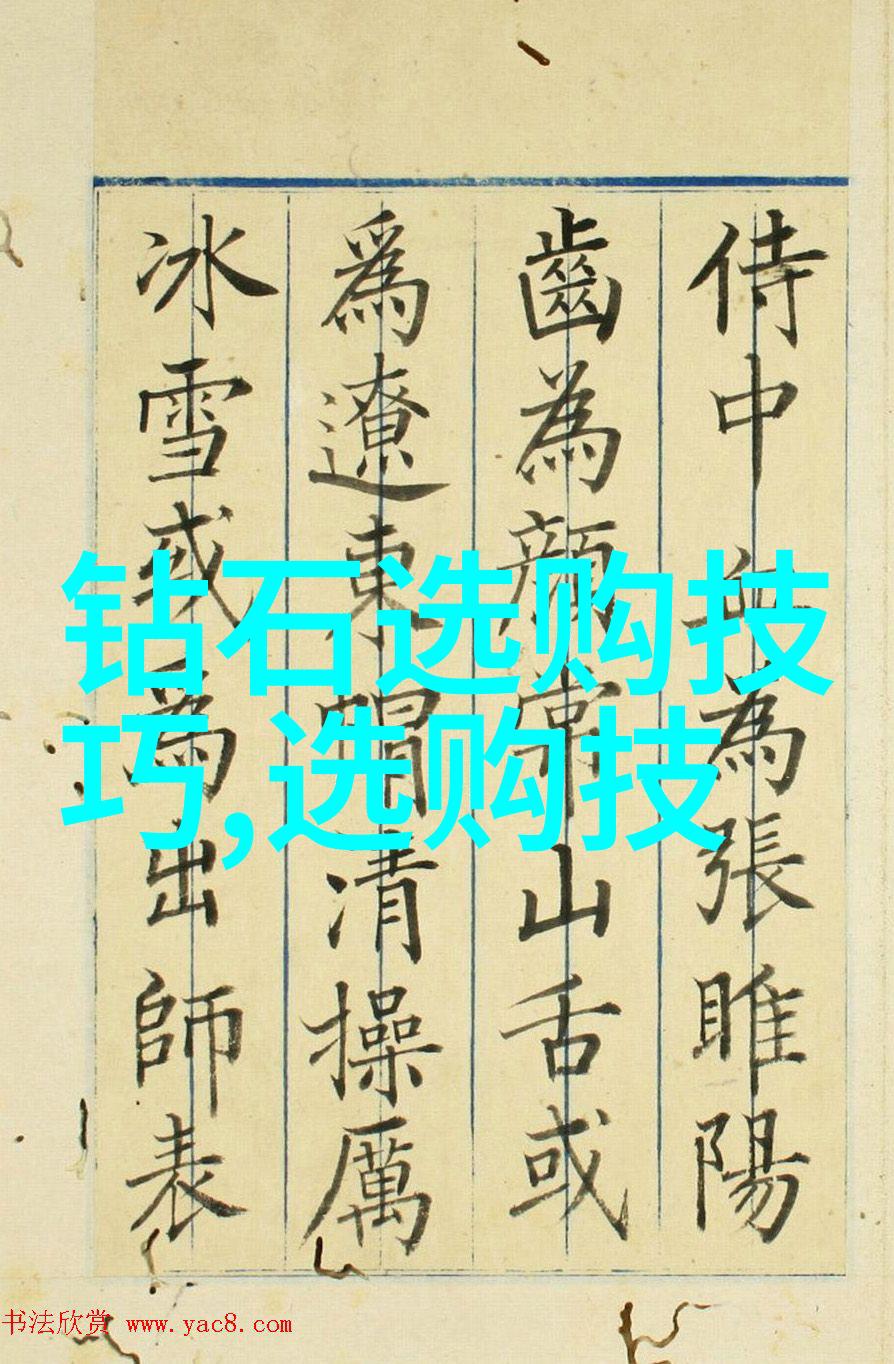 侍中血為張睢陽
齒為顔常山舌或
爲遼東帽清操厲
冰雪或為出師表
钻石选购技
巧,选购技
书法欣赏 www.yac8.com